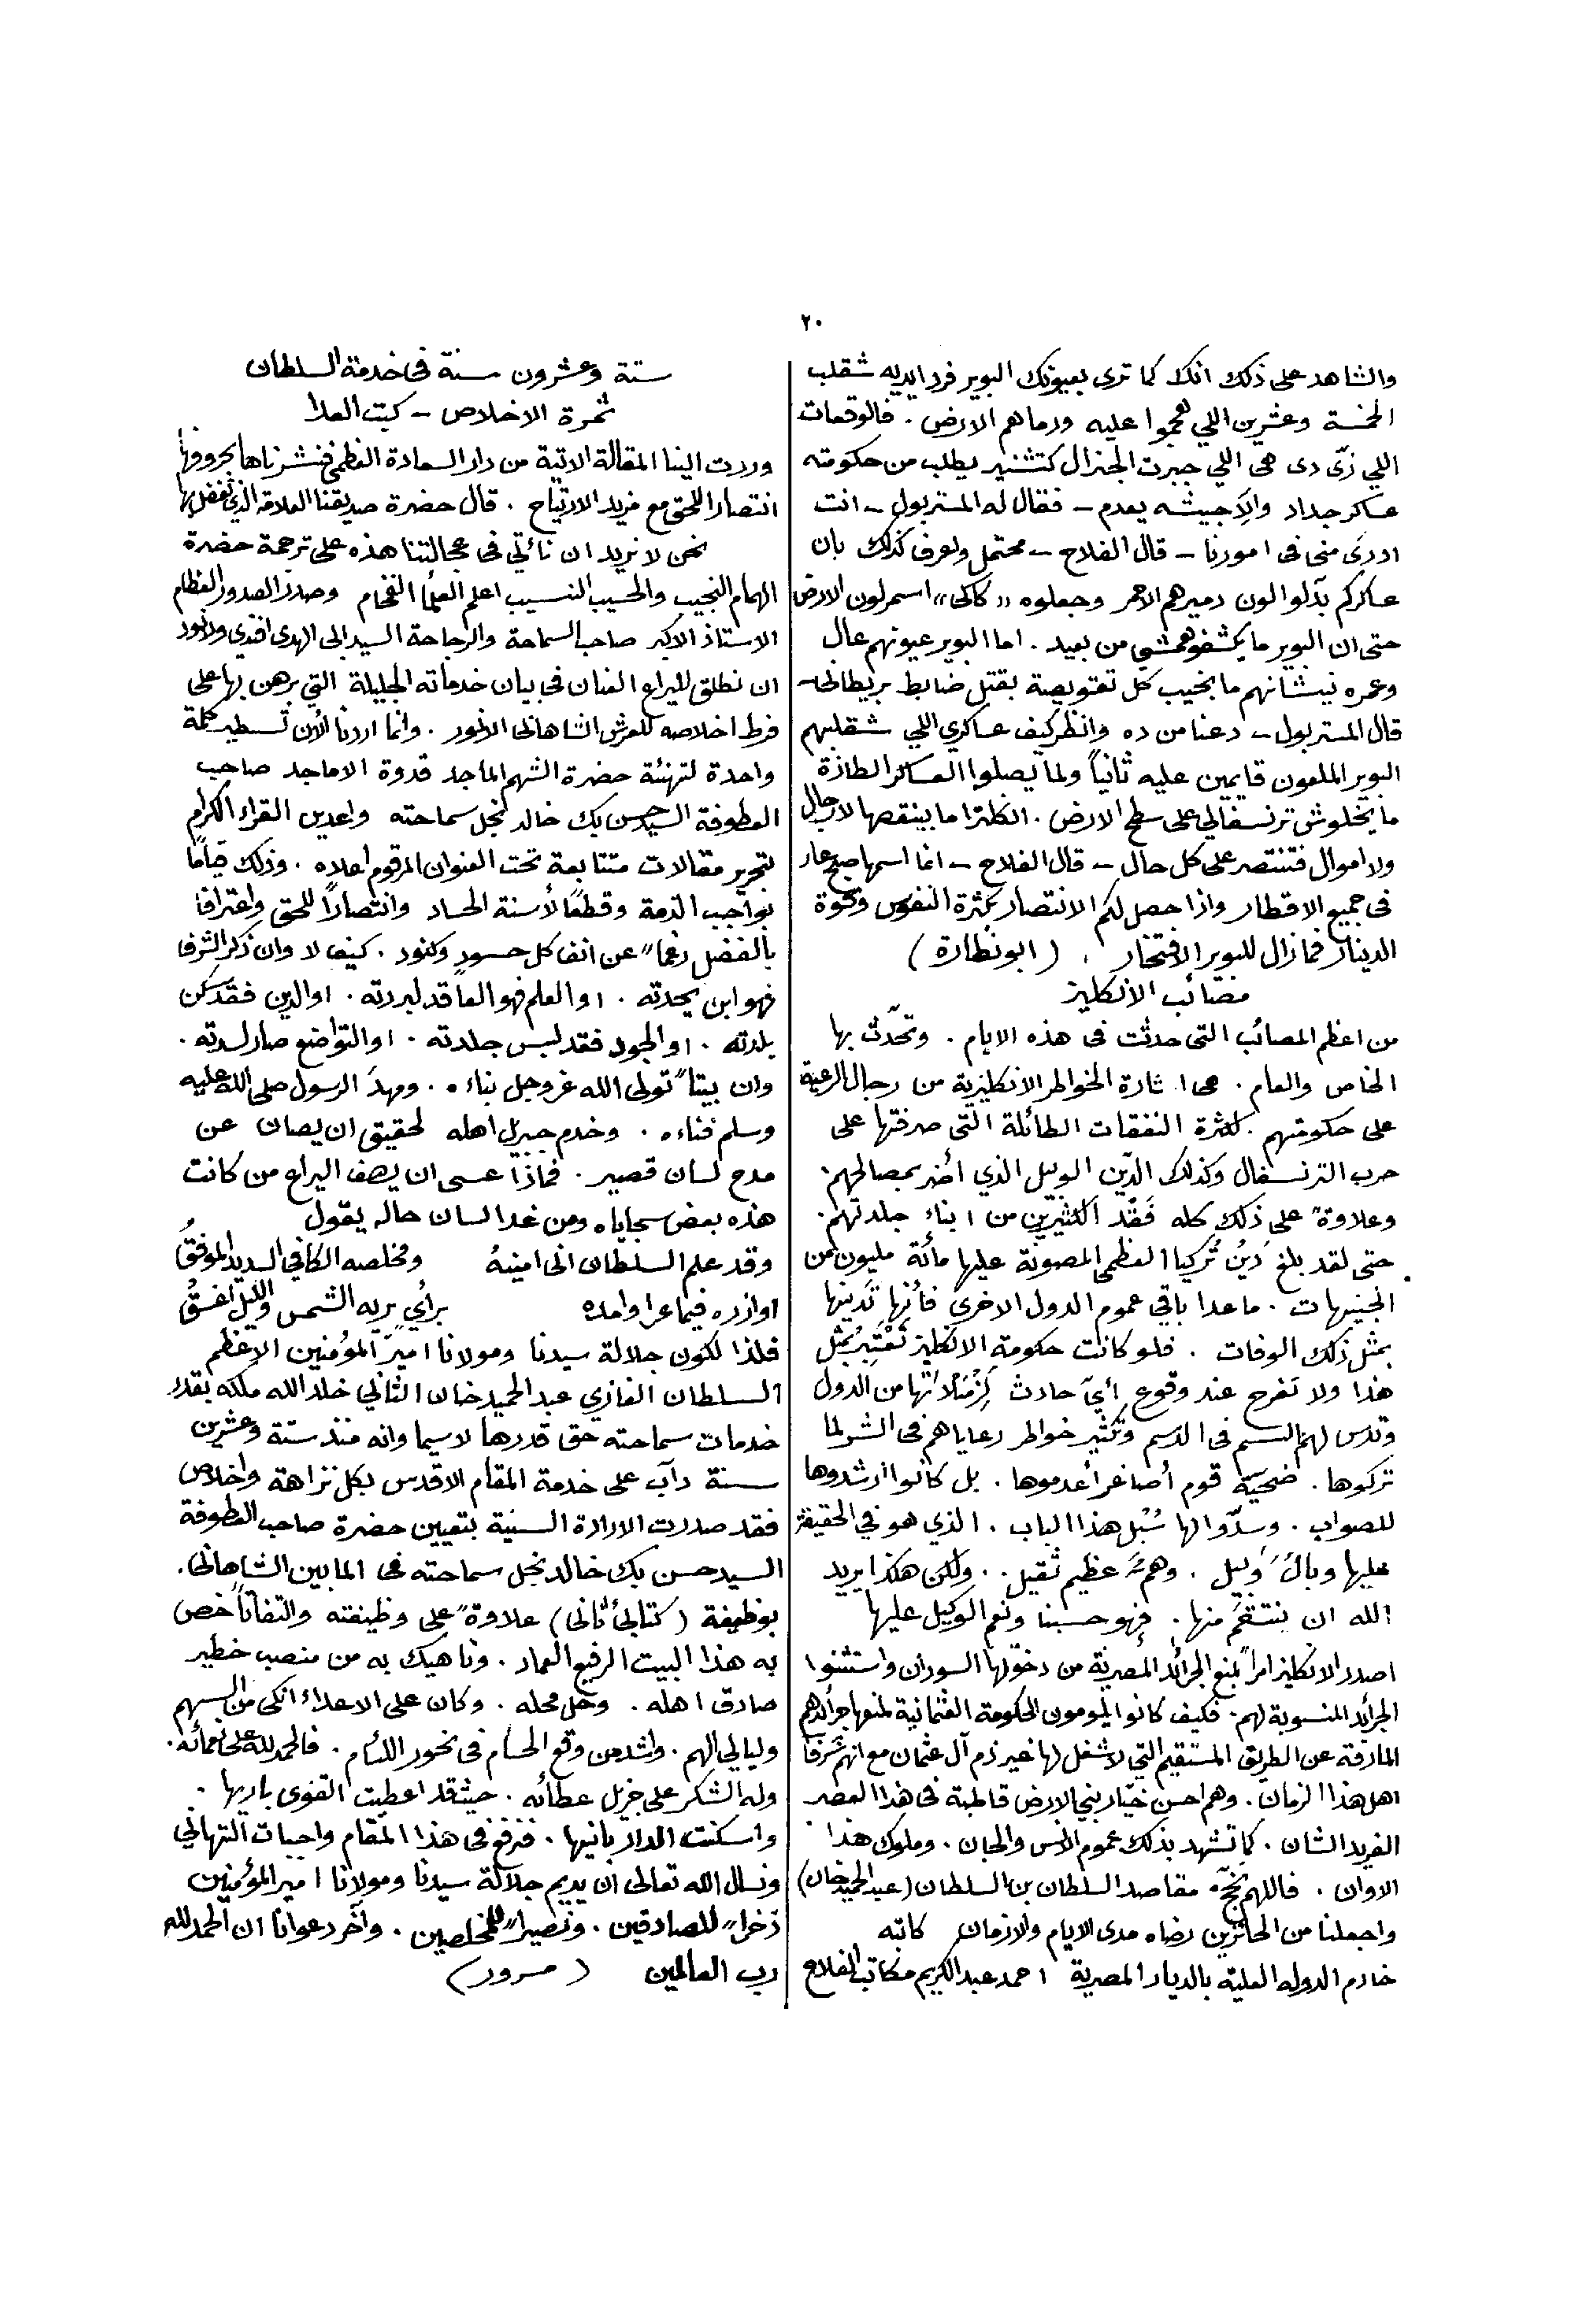 ٢٠
والشاهد على ذلك انك كما ترى بعيونك البوير فرد ايديه شقلب
الخمسة وعشرين اللي هجموا عليه ورماهم الارض . فالوقعات
اللي زيّ دى هي اللي جبرت الجنرال كتشنير يطلب من حكومته
عساكر جداد والاّ جيشه يعدم – فقال له المستر بول – انت
ادرى منى فى امورنا – قال الفلاح – محتمل ولعرف كذلك بان
عساكركم بدّلوا لون دميرهم الاحمر وجعلوه «كاكى» اسمر لون الارض
حتى ان البوير ما يكشفوهمشى من بعيد . اما البوير عيونهم عال
وعمره نيشانهم ما يخيب كل تعتويصة بقتل ضابط بريطانى –
قال المستر بول – دعنا من ده وانظر كيف عساكري اللي شقلبهم
البوير الملعون قايمين عليه ثانياً ولما يصلوا العساكر الطازة
ما يخلوش ترنسفالي على سطح الارض . انكلترا ما ينقصها لا رجال
ولا اموال فتنتصر على كل حال – قال الفلاح – انما اسمها صبح عار
فى جميع الاقطار واذا حصل لكم الانتصار بكثرة النفوس وقوة
الدينار فما زال للبوير الافتخار . (ابو نظارة)
مصائب الانكليز
من اعظم المصائب التى حدثت فى هذه الايام . وتحدّث بها
الخاص والعام . هى اثارة الخواطر الانكليزية من رجال الرعية
على حكومتهم . لكثرة النفقات الطائلة التى صرفتها على
حرب الترنسفال وكذلك الدّين الوبيل الذي أضر بمصالحهم .
وعلاوةً على ذلك كله فَقْد الكثيرين من ابناء جلدتهم .
حتى لقد بلغ دَينُ تُركيا العظمى المصونة عليها مائة مليون من
الجنيهات . ما عدا باقي عموم الدول الاخرى فأنها تدينها
بمثل ذلك الوفات . فلو كانت حكومة الانكليز تَعْتَبِرُ بمثل
هذا ولا تفرح عند وقوع أيّ حادث لِزُمَلائها من الدول
وتدس لهم السم فى الدسم وتثير خواطر رعاياهم فى الشر لما
تركوها . ضحيّة قوم أصاغر أعدموها . بل كانوا ارشدوها
للصواب . وسدّوا لها سُبل هذا الباب . الذي هو في الحقيقة
عليها وبالٌ وبيل . وهمٌّ عظيم ثقيل . . ولكن هكذا يريد
الله ان ينتقمَ منها . فهو حسبنا ونعم الوكيل عليها
اصدر الانكليز امراً بمنع الجرائد المصرية من دخولها السودان واستثنوا
الجرائد المنسوبة لهم . فكيف كانوا يلومون الحكومة العثمانية لمنعها جرائدهم
المارقة عن الطريق المستقيم التي لا شغل لها غير ذم آل عثمان مع انهم شرفاً
اهل هذا الزمان . وهم احسن خيّار بني الارض قاطبة فى هذا العصر
الفريد الشان . كما تشهد بذلك عموم الانس والجان . وملوك هذا
الاوان . فاللهم نجّح مقاصد السلطان بن السلطان (عبد الحميد خان)
واجعلنا من الحائزين رضاه مدى الايام والازمان كاتبه
خادم الدولة العليّة بالديار المصرية احمد عبد الكريم مكاتب الفلاح
ستة وعشرون سنة فى خدمة السلطان
ثمرة الاخلاص – كبت العدا
وردت الينا المقالة الاتية من دار السعادة العظمى فنشرناها بحروفها
انتصارا للحق مع مزيد الارتياح . قال حضرة صديقنا العلامة الذي تفضل بها
نحن لا نريد ان نأتي فى عجالتنا هذه على ترجمة حضرة
الهمام النجيب والحسيب النسيب اعلم العلما الفخام وصدر الصدور العظام
الاستاذ الاكبر صاحب السماحة والرجاحة السيد ابى الهدى افندى ولا نود
ان نطلق لليراع العنان فى بيان خدماته الجليلة التي برهن بها على
فرط اخلاصه للعرش الشاهانى الانور . وانما اردنا الأن تسطير كلمة
واحدة لتهنئة حضرة الشهم الماجد قدوة الاماجد صاحب
العطوفة السيد حسن بك خالد نجل سماحته واعدين القراء الكرام
بتحرير مقالات متتابعة تحت العنوان المرقوم اعلاه . وذلك قياماً
بواجب الذمة وقطعًا لأسنة الحساد وانتصاراً للحق واعترافا
بالفضل رغماً عن انف كل حسودٍ وكنود . كيف لا وان ذكر الشرف
فهو ابن بجدته . او العلم فهو العاقد لبردته . او الدين فقد سكن
بلدته . او الجود فقد لبس جلدته . او التواضع صار لسدته .
وان بيتاً تولى الله عز وجل بناءه . ومهدَ الرسول صلى الله عليه
وسلم فناءه . وخدم جبريل اهله لحقيق ان يصان عن
مدح لسان قصير . فماذا عسى ان يصف اليراع من كانت
هذه بعض سجاياه ومن غدا لسان حاله يقول
وقد علم السلطان انى امينهُ ومخلصه الكافي السديد الموفقُ
اوازره فيما عرا وامده برأي يريه الشمس والليل اغسقُ
فلذا لكون جلالة سيدنا ومولانا اميرَ المؤمنين الاعظم
السلطان الغازي عبد الحميد خان الثاني خلد الله ملكه يقدر
خدمات سماحته حق قدرها لا سيما وانه منذ ستة وعشرين
سنة دآب على خدمة المقام الاقدس بكل نزاهة واخلاص
فقد صدرت الارادة السنية بتعيين حضرة صاحب العطوفة
السيد حسن بك خالد نجل سماحته فى المابين الشاهانى .
بوظيفة (كتابى ثانى) علاوةً على وظيفته والتفاتاً خص
به هذا البيت الرفيع العماد . وناهيك به من منصب خطير
صادق اهله . وحل محله . وكان على الاعداء انكى من السهم
وليالي الهم . واشد من وقع الحسام فى نحور اللئام . فالحمد لله على نعمائه .
وله الشكر على جزيل عطائه . حيث قد اعطيت القوس باريها .
واسكنت الدار بانيها . فنرفع فى هذا المقام واجبات التهاني
ونسال الله تعالى ان يديم جلالة سيدنا ومولانا امير المؤمنين
ذخراً للصادقين . ونصيراً للمخلصين . وآخر دعوانا ان الحمد لله
رب العالمين (مسرور)